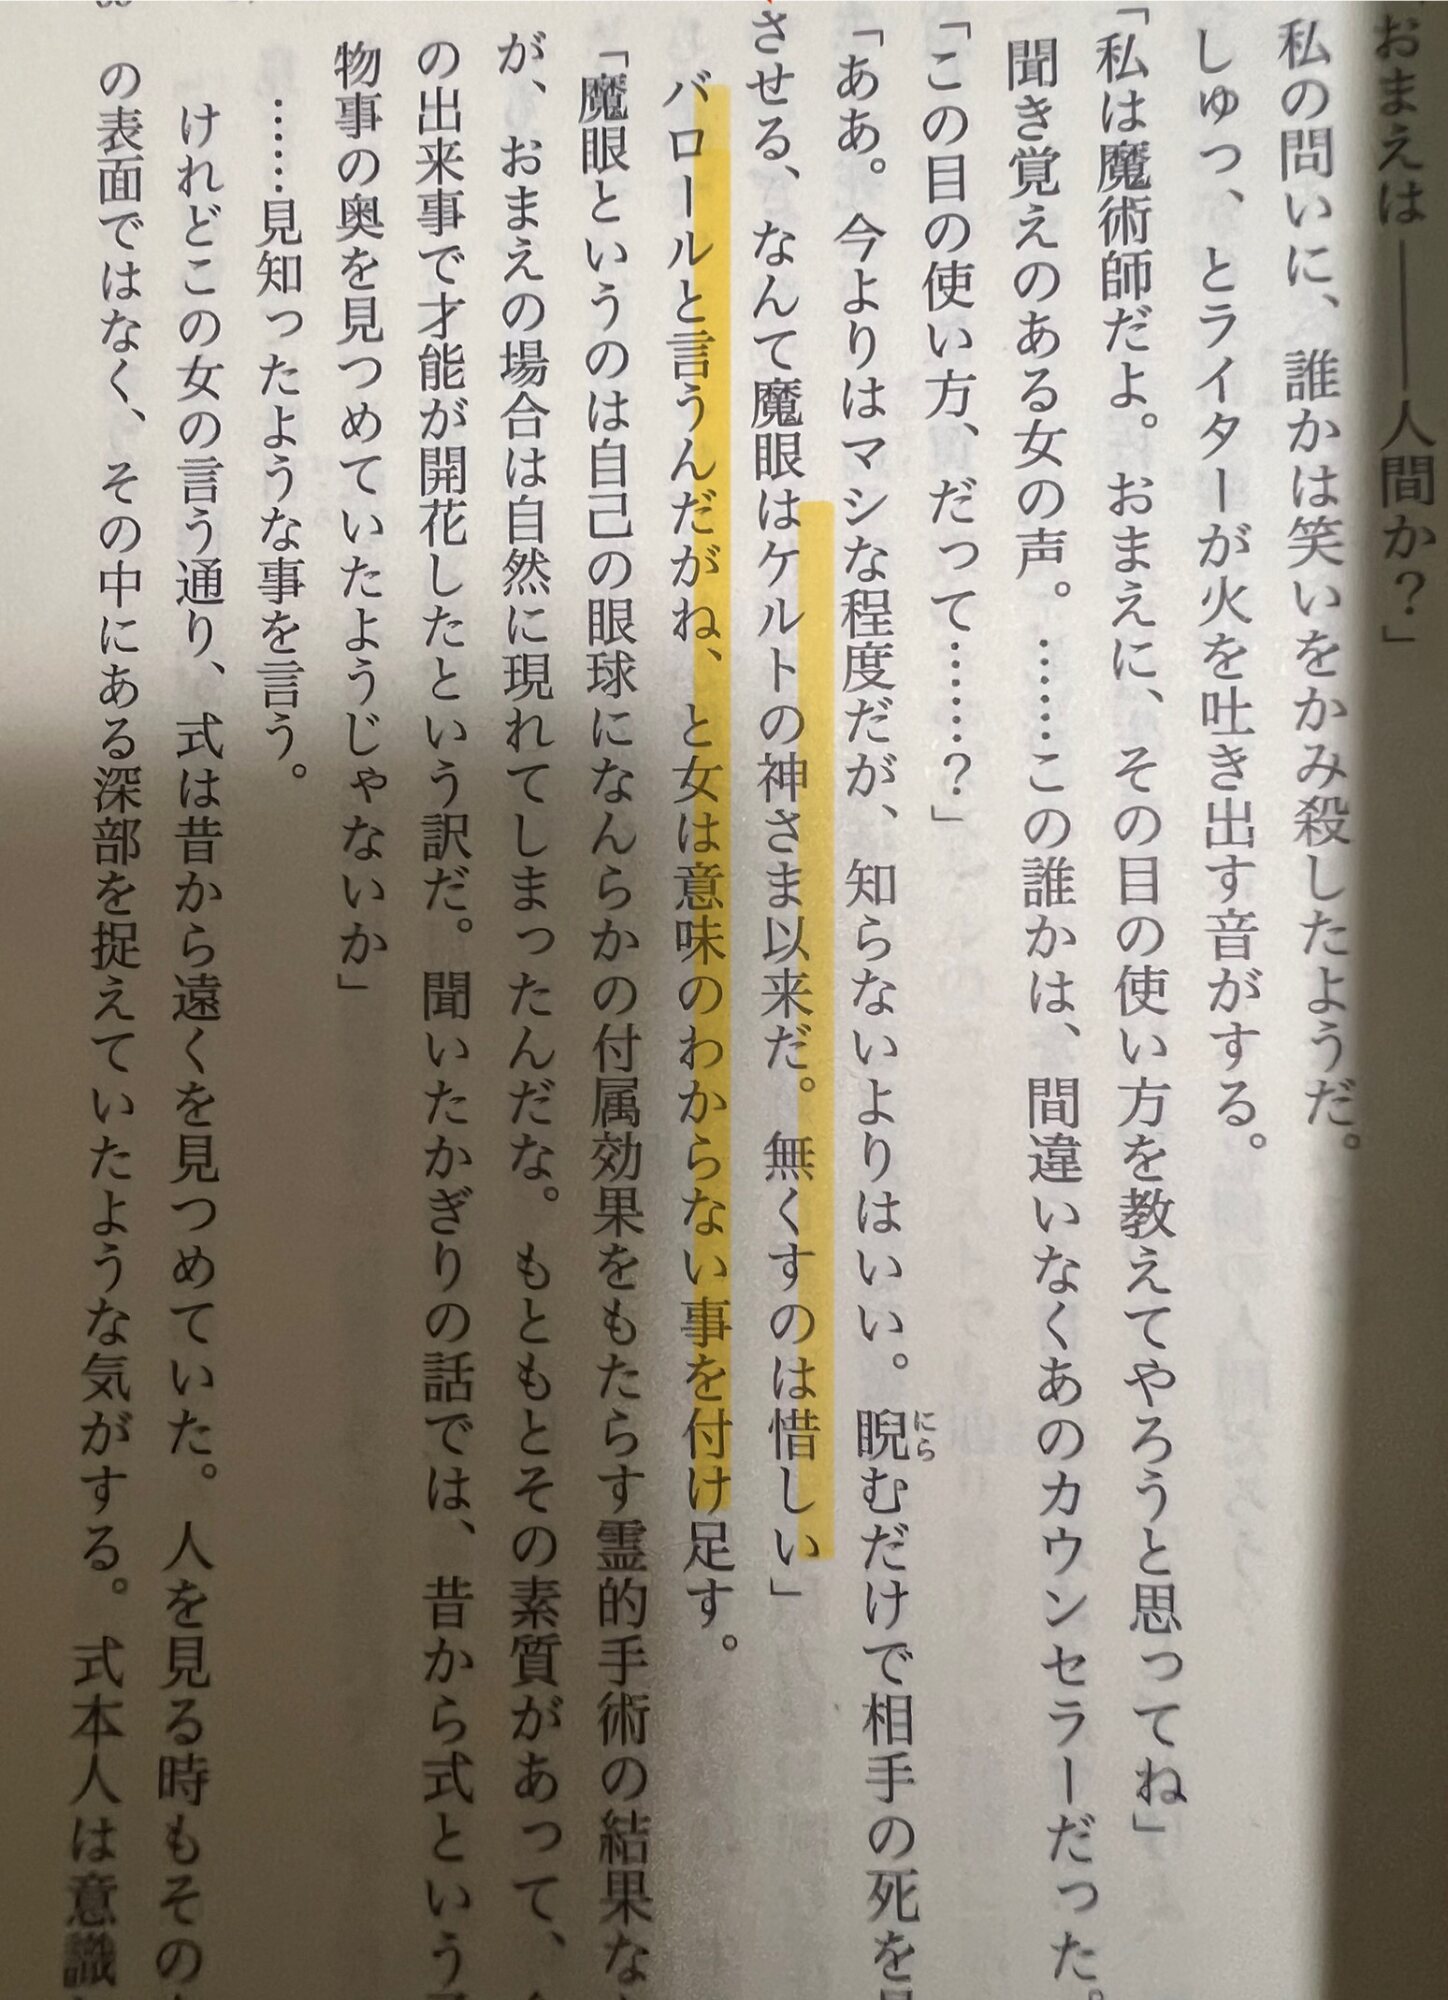 おまえは――人間か？」
私の問いに、誰かは笑いをかみ殺したようだ。
しゅっ、とライターが火を吐き出す音がする。
「私は魔術師だよ。おまえに、その目の使い方を教えてやろうと思ってね」
聞き覚えのある女の声。……この誰かは、間違いなくあのカウンセラーだった。
「この目の使い方、だって……？」
「ああ。今よりはマシな程度だが、知らないよりはいい。睨むだけで相手の死を
にら
させる、なんて魔眼はケルトの神さま以来だ。無くすのは惜しい」
バロールと言うんだがね、と女は意味のわからない事を付け足す。
「魔眼というのは自己の眼球になんらかの付属効果をもたらす霊的手術の結果な
が、おまえの場合は自然に現れてしまったんだな。もともとその素質があって、
の出来事で才能が開花したという訳だ。聞いたかぎりの話では、昔から式という
物事の奥を見つめていたようじゃないか」
……見知ったような事を言う。
けれどこの女の言う通り、式は昔から遠くを見つめていた。人を見る時もその
の表面ではなく、その中にある深部を捉えていたような気がする。式本人は意識